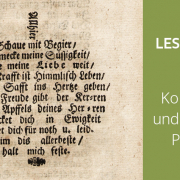 Allhier
Schaue mit Begier/
mecke meine Süßigkeit
e meine Liebe weit
krafft ist Himmlisch Leben/
Safft ins Hertze geben/
Freude gibt der Ker-ren
Apffels deines Her-ren
cket dich in Ewigkeit
et dich für noth u. leid.
im das allerbeste/
halt mich feste.
LES
Ko
und
P